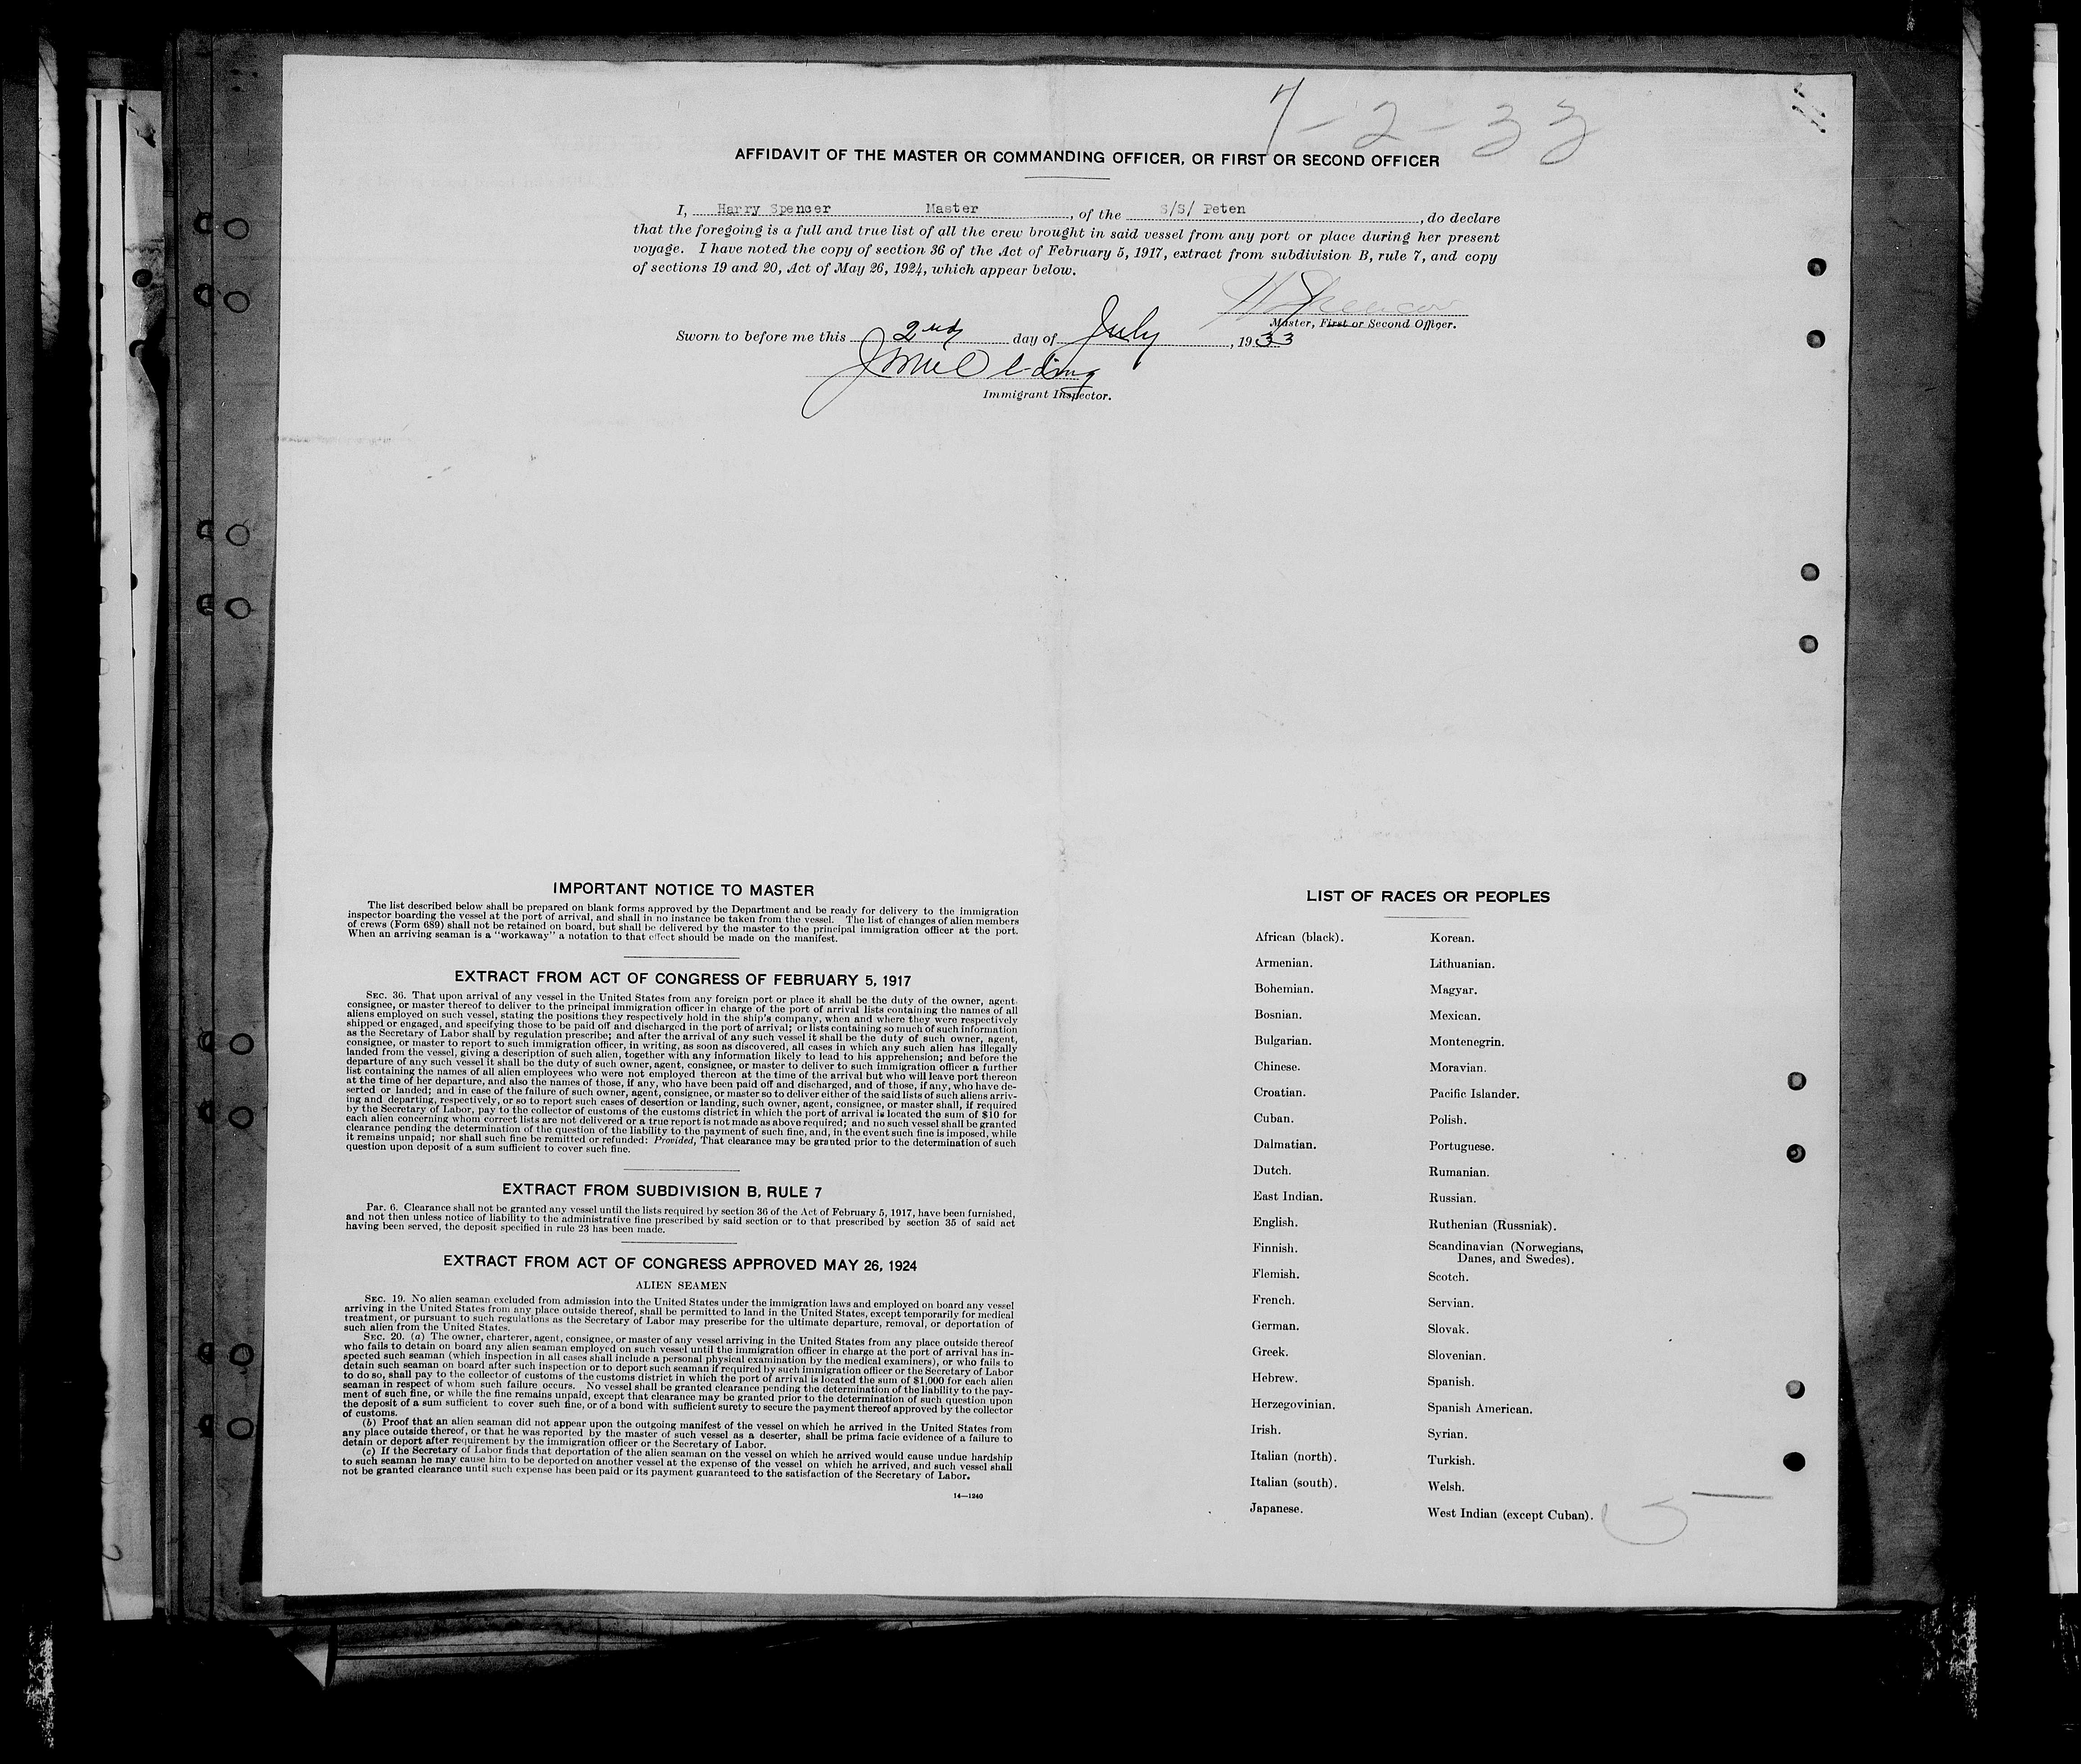 7-2-33
AFFIDAVIT OF THE MASTER OR COMMANDING OFFICER, OR FIRST OR SECOND OFFICER
I, Harry Spencer Master, of the S/S/ Peten, do declare
that the foregoing is a full and true list of all the crew brought in said vessel from any port or place during her present
voyage. I have noted the copy of section 36 of the Act of February 5, 1917, extract from subdivision B, rule 7, and copy
of sections 19 and 20, Act of May 26, 1924, which appear below.
H Spencer
Master, First or Second Officer.
Sworn to before me this 2nd day of July, 1933
Immigrant Inspector.
IMPORTANT NOTICE TO MASTER
The list described below shall be prepared on blank forms approved by the Department and be ready for delivery to the immigration
inspector boarding the vessel at the port of arrival, and shall in no instance be taken from the vessel. The list of changes of alien members
of crews (Form 689) shall not be retained on board, but shall be delivered by the master to the principal immigration officer at the port.
When an arriving seaman is a "workaway" a notation to that effect should be made on the manifest.
EXTRACT FROM ACT OF CONGRESS OF FEBRUARY 5, 1917
SEC. 36. That upon arrival of any vessel in the United States from any foreign port or place it shall be the duty of the owner, agent,
consignee, or master thereof to deliver to the principal immigration officer in charge of the port of arrival lists containing the names of all
aliens employed on such vessel, stating the positions they respectively hold in the ship's company, when and where they were respectively
shipped or engaged, and specifying those to be paid off and discharged in the port of arrival; or lists containing so much of such information
as the Secretary of Labor shall by regulation prescribe; and after the arrival of any such vessel it shall be the duty of such owner, agent,
consignee, or master to report to such immigration officer, in writing, as soon as discovered, all cases in which any such alien has illegally
landed from the vessel, giving a description of such alien, together with any information likely to lead to his apprehension; and before the
departure of any such vessel it shall be the duty of such owner, agent, consignee, or master to deliver to such immigration officer a further
list containing the names of all alien employees who were not employed thereon at the time of the arrival but who will leave port thereon
at the time of her departure, and also the names of those, if any, who have been paid off and discharged, and of those, if any, who have de-
serted or landed; and in case of the failure of such owner, agent, consignee, or master so to deliver either of the said lists of such aliens arriv-
ing and departing, respectively, or so to report such cases of desertion or landing, such owner, agent, consignee, or master shall, if required
by the Secretary of Labor, pay to the collector of customs of the customs district in which the port of arrival is located the sum of $10 for
each alien concerning whom correct lists are not delivered or a true report is not made as above required; and no such vessel shall be granted
clearance pending the determination of the question of the liability to the payment of such fine, and, in the event such fine is imposed, while
it remains unpaid; nor shall such fine be remitted or refunded: Provided, That clearance may be granted prior to the determination of such
question upon deposit of a sum sufficient to cover such fine.
EXTRACT FROM SUBDIVISION B, RULE 7
Par. 6. Clearance shall not be granted any vessel until the lists required by section 36 of the Act of February 5, 1917, have been furnished,
and not then unless notice of liability to the administrative fine prescribed by said section or to that prescribed by section 35 of said act
having been served, the deposit specified in rule 23 has been made.
EXTRACT FROM ACT OF CONGRESS APPROVED MAY 26, 1924
ALIEN SEAMEN
SEC. 19. No alien seaman excluded from admission into the United States under the immigration laws and employed on board any vessel
arriving in the United States from any place outside thereof, shall be permitted to land in the United States, except temporarily for medical
treatment, or pursuant to such regulations as the Secretary of Labor may prescribe for the ultimate departure, removal, or deportation of
such alien from the United States.
SEC. 20. (a) The owner, charterer, agent, consignee, or master of any vessel arriving in the United States from any place outside thereof
who fails to detain on board any alien seaman employed on such vessel until the immigration officer in charge at the port of arrival has in-
spected such seaman (which inspection in all cases shall include a personal physical examination by the medical examiners), or who fails to
detain such seaman on board after such inspection or to deport such seaman if required by such immigration officer or the Secretary of Labor
to do so, shall pay to the collector of customs of the customs district in which the port of arrival is located the sum of $1,000 for each alien
seaman in respect of whom such failure occurs. No vessel shall be granted clearance pending the determination of the liability to the pay-
ment of such fine, or while the fine remains unpaid, except that clearance may be granted prior to the determination of such question upon
the deposit of a sum sufficient to cover such fine, or of a bond with sufficient surety to secure the payment thereof approved by the collector
of customs.
(b) Proof that an alien seaman did not appear upon the outgoing manifest of the vessel on which he arrived in the United States from
any place outside thereof, or that he was reported by the master of such vessel as a deserter, shall be prima facie evidence of a failure to
detain or deport after requirement by the immigration officer or the Secretary of Labor.
(c) If the Secretary of Labor finds that deportation of the alien seaman on the vessel on which he arrived would cause undue hardship
to such seaman he may cause him to be deported on another vessel at the expense of the vessel on which he arrived, and such vessel shall
not be granted clearance until such expense has been paid or its payment guaranteed to the satisfaction of the Secretary of Labor.
14—1240
LIST OF RACES OR PEOPLES
African (black).
Armenian.
Bohemian.
Bosnian.
Bulgarian.
Chinese.
Croatian.
Cuban.
Dalmatian.
Dutch.
East Indian.
English.
Finnish.
Flemish.
French.
German.
Greek.
Hebrew.
Herzegovinian.
Irish.
Italian (north).
Italian (south).
Japanese.
Korean.
Lithuanian.
Magyar.
Mexican.
Montenegrin.
Moravian.
Pacific Islander.
Polish.
Portuguese.
Rumanian.
Russian.
Ruthenian (Russniak).
Scandinavian (Norwegians,
Danes, and Swedes).
Scotch.
Servian.
Slovak.
Slovenian.
Spanish.
Spanish American.
Syrian.
Turkish.
Welsh.
West Indian (except Cuban).
5